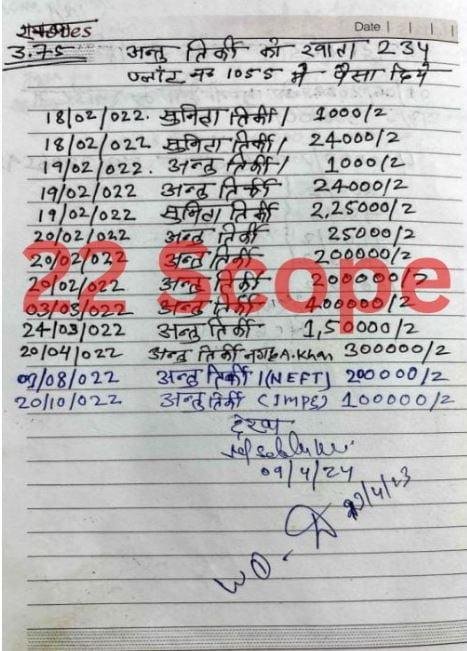 Date
3.75 अन्तु तिर्की को खाता 234
प्लॉट नं० 1055 में पैसा दिये
18/02/022. सुनिता तिर्की / 1000/2
18/02/022 सुनिता तिर्की / 24000/2
19/02/022. अन्तु तिर्की / 1000/2
19/02/022 अन्तु तिर्की 24000/2
19/02/022 सुनिता तिर्की 2,25000/2
20/02/022 अन्तु तिर्की 25000/2
20/02/022 अन्तु तिर्की 200000/2
20/02/022 अन्तु तिर्की 200000/2
22 Scope
03/03/022 अन्तु तिर्की 400000/2
24/03/022 अन्तु तिर्की 1,50000/2
20/04/022 अन्तु तिर्की नगद A.Khan 300000/2
09/08/022 अन्तु तिर्की / (NEFT) 200000/2
20/10/022 अन्तु तिर्की (IMPS) 100000/2
देखा
09/4/24